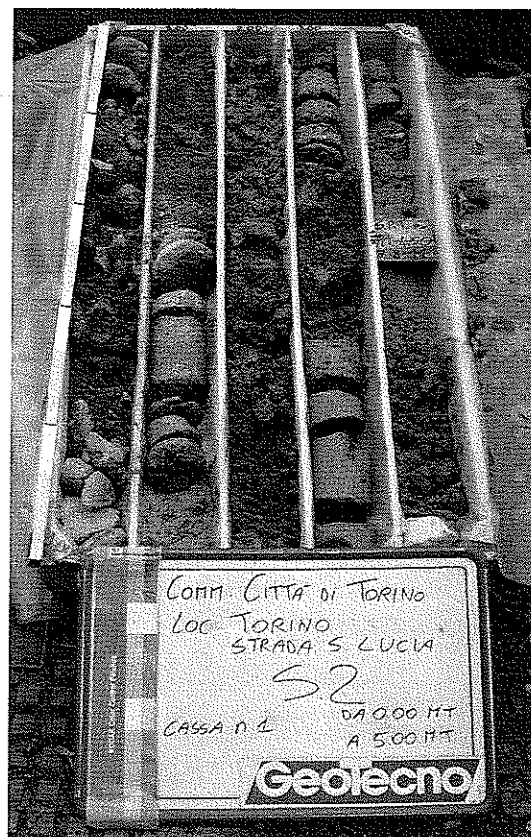 COMM: CITTÀ DI TORINO
LOC: TORINO
STRADA S LUCIA
S2
CASSA n 1
DA 0.00 MT
A 5.00 MT
GEOTECNO